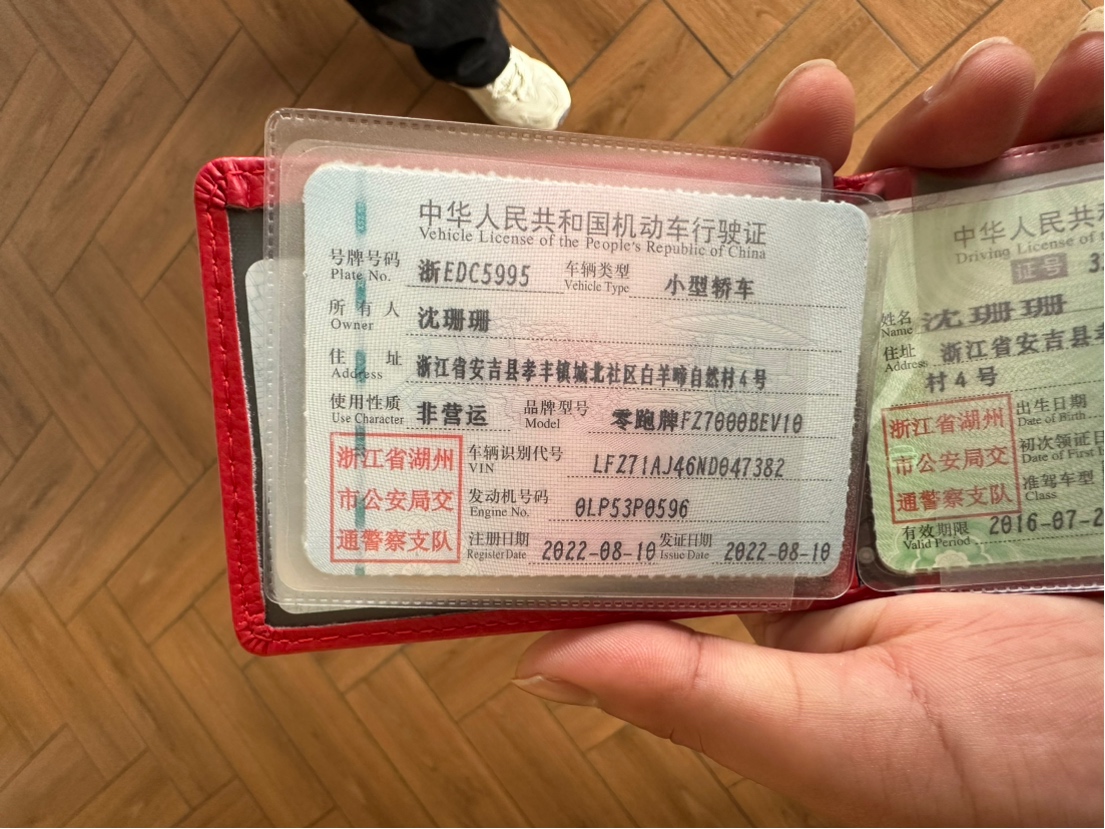 中华人民共和国机动车行驶证
Vehicle License of the People's Republic of China
号牌号码 浙EDC5995 车辆类型 小型轿车
Plate No. Vehicle Type
所有人 沈珊珊
Owner
住址 浙江省安吉县孝丰镇城北社区白羊啼自然村4号
Address
使用性质 非营运 品牌型号 零跑牌FZ7000BEV10
Use Character Model
浙江省湖州
市公安局交
通警察支队
车辆识别代号 LFZ71AJ46ND047382
VIN
发动机号码 0LP53P0596
Engine No.
注册日期 2022-08-10 发证日期 2022-08-10
Register Date Issue Date
中华人民共和
Driving License of
证号 33
姓名 沈珊珊
Name
住址 浙江省安吉县孝
Address 村4号
浙江省湖州
市公安局交
通警察支队
出生日期
Date of Birth
初次领证日
Date of First I
准驾车型
Class
有效期限 2016-07-2
Valid Period